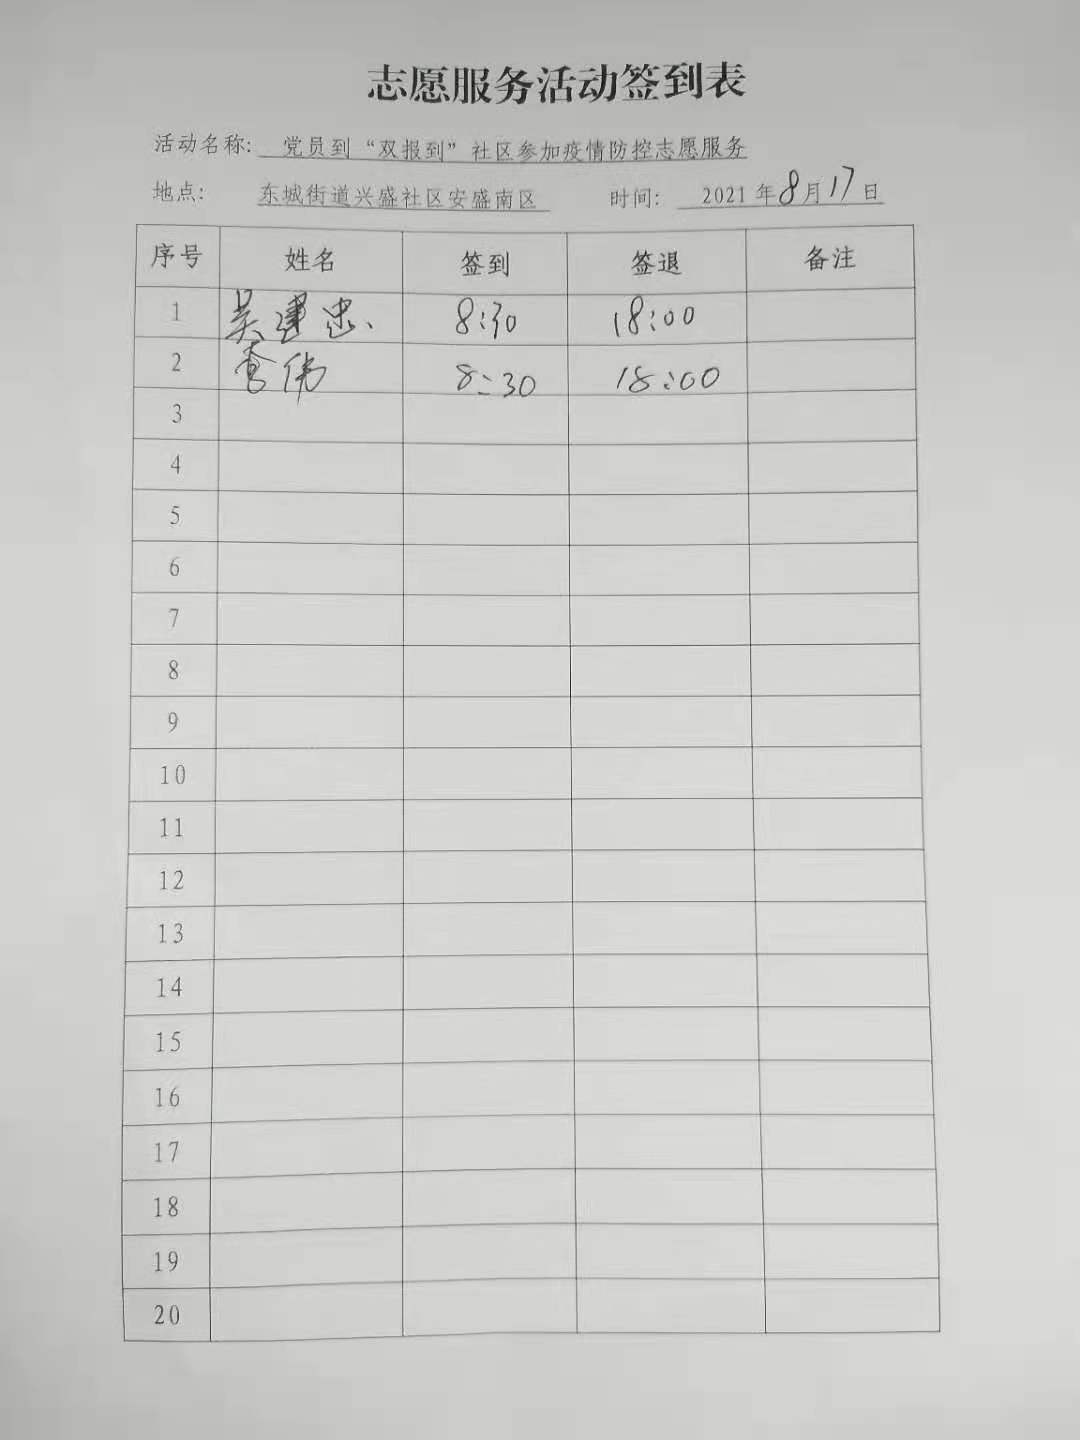 志愿服务活动签到表
活动名称: 党员到“双报到”社区参加疫情防控志愿服务
地点: 东城街道兴盛社区安盛南区 时间: 2021年8月17日
序号 姓名 签到 签退 备注
1 吴建忠 8:30 18:00
2 查伟 8:30 18:00
3
4
5
6
7
8
9
10
11
12
13
14
15
16
17
18
19
20